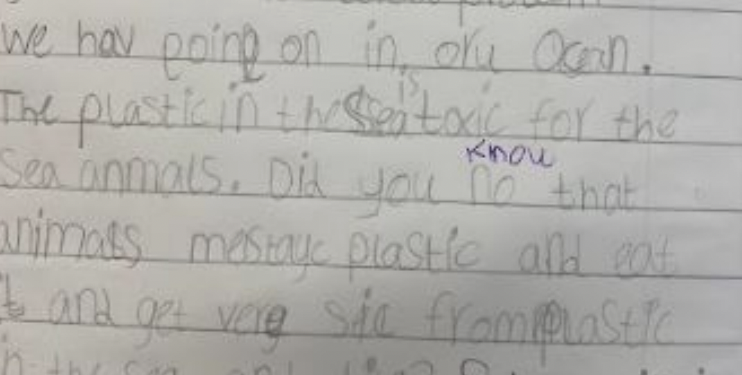 we hav going on in ory Ocean.
is
The plastic in the Sea toxic for the
know
Sea anmals. Did you no that
animals mestayc plastic and eat
it and get very sic from plastic
in the sea